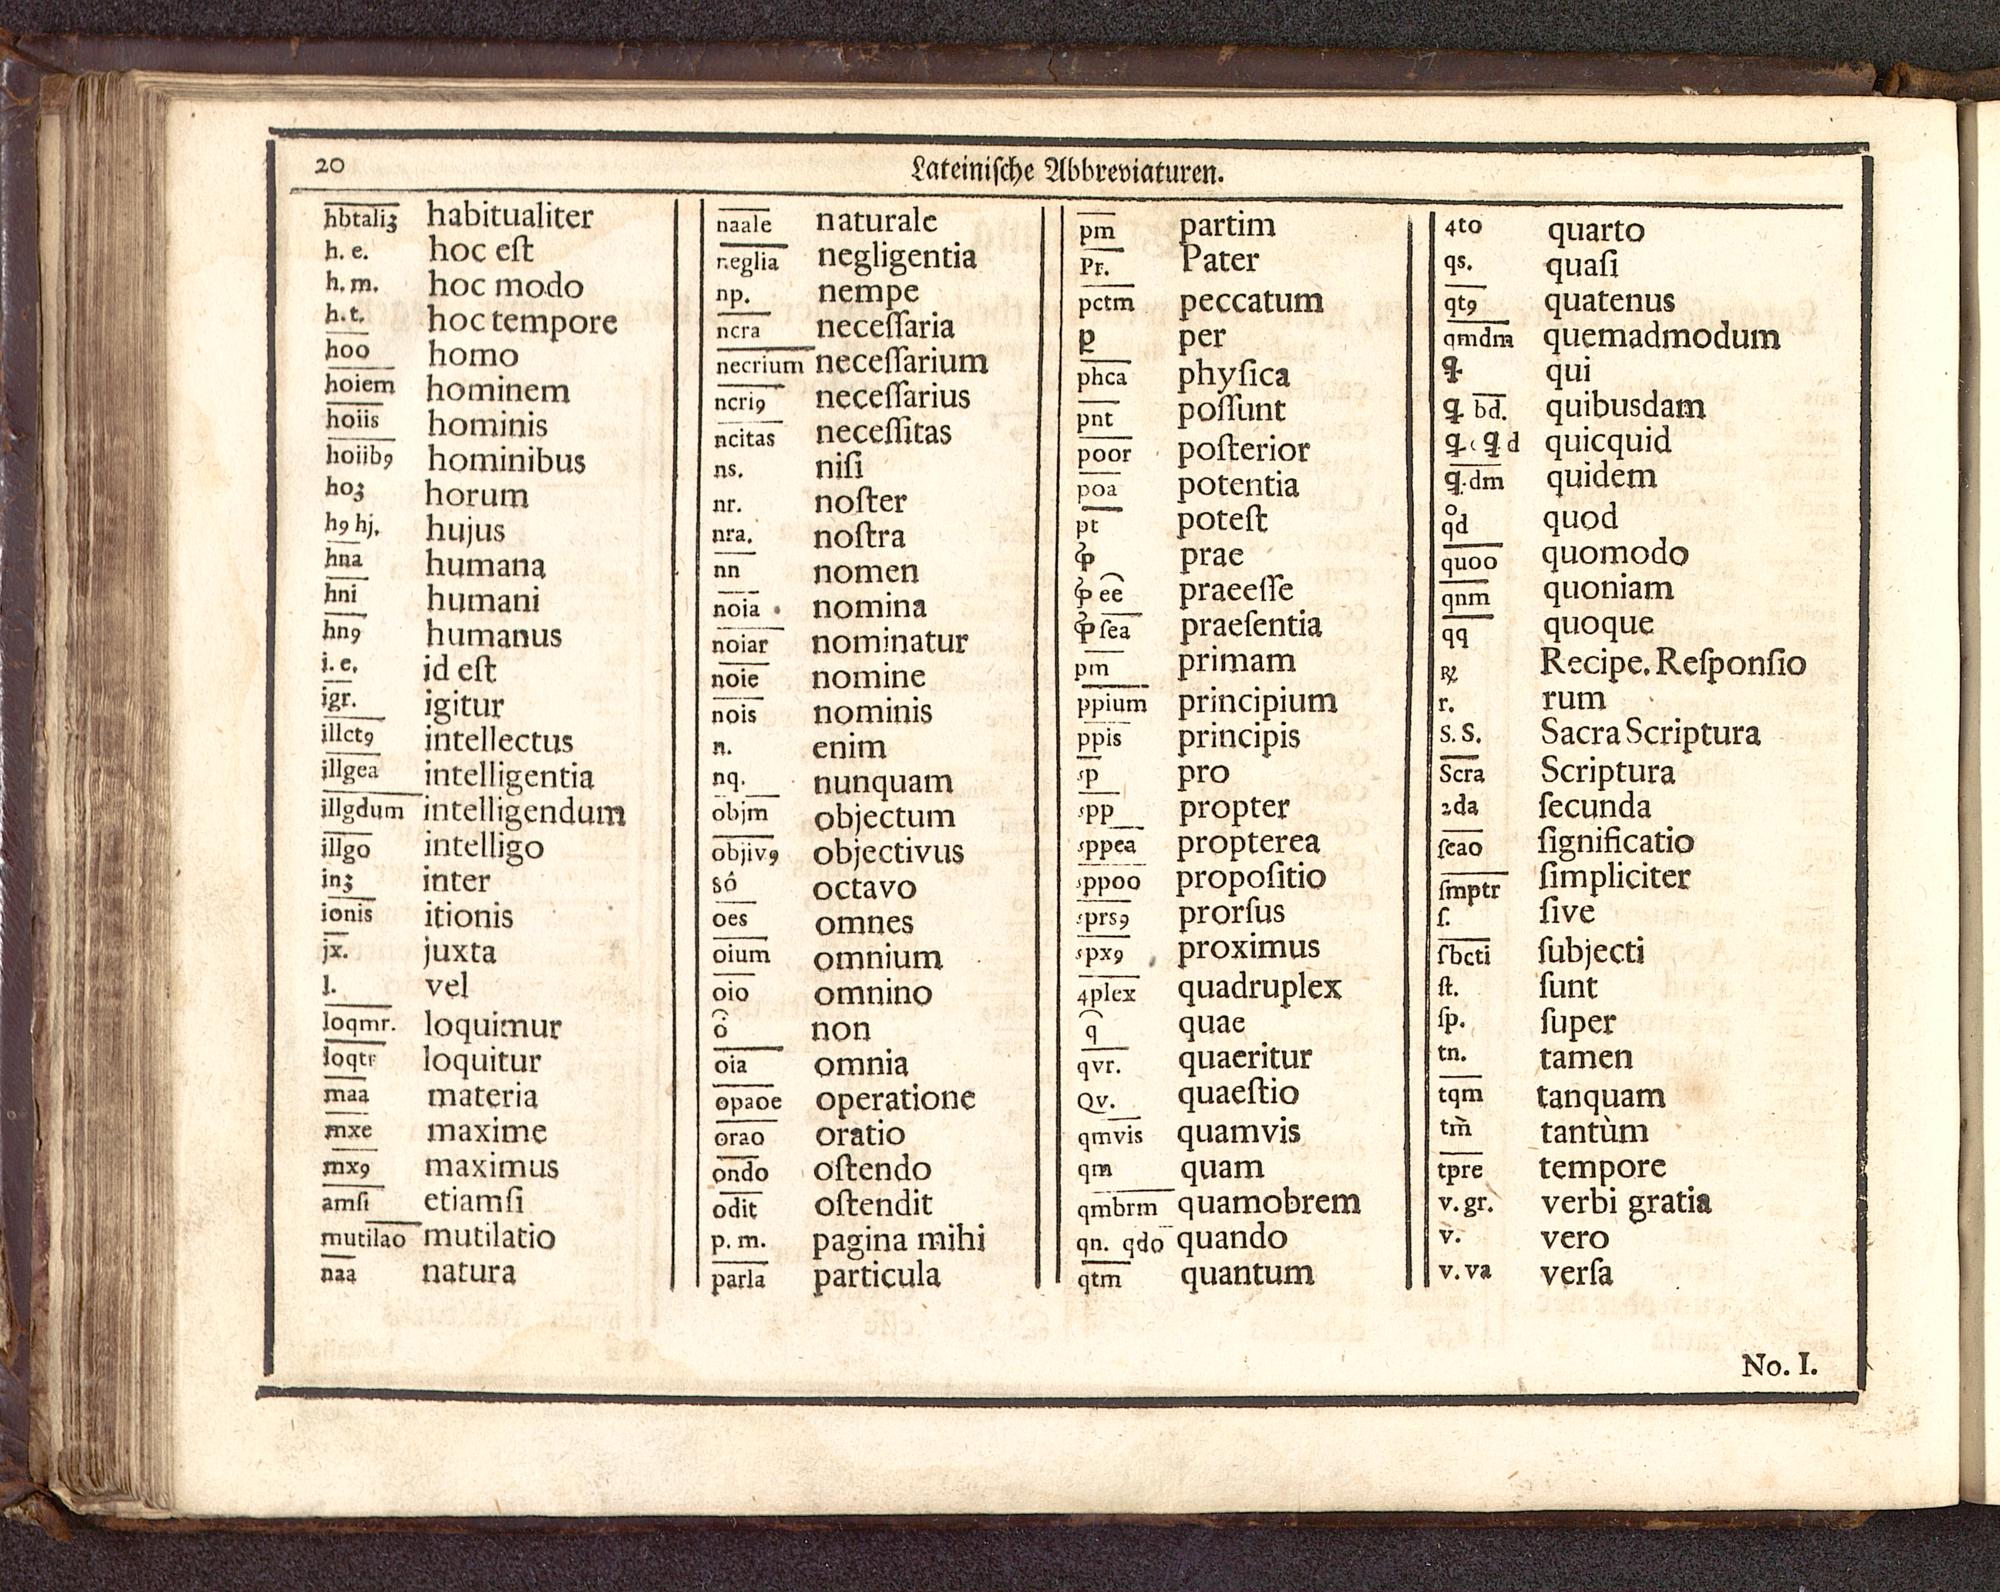 20
Lateinische Abbreviaturen.
hbtaliꝫ habitualiter
h. e. hoc eſt
h. m. hoc modo
h. t. hoc tempore
hoo homo
hoiem hominem
hoiis hominis
hoiib9 hominibus
hoꝫ horum
h9 hj. hujus
hna humana
hni humani
hn9 humanus
i. e. id eſt
igr. igitur
illct9 intellectus
illgea intelligentia
illgdum intelligendum
illgo intelligo
inꝫ inter
ionis itionis
jx. juxta
l. vel
loqmr. loquimur
loqtr loquitur
maa materia
mxe maxime
mx9 maximus
amſi etiamſi
mutilao mutilatio
naa natura
naale naturale
neglia negligentia
np. nempe
ncra neceſſaria
necrium neceſſarium
ncri9 neceſſarius
ncitas neceſſitas
ns. niſi
nr. noſter
nra. noſtra
nn nomen
noia nomina
noiar nominatur
noie nomine
nois nominis
n. enim
nq. nunquam
objm objectum
objiv9 objectivus
só octavo
oes omnes
oium omnium
oio omnino
ȏ non
oia omnia
opaoe operatione
orao oratio
ondo oſtendo
odit oſtendit
p. m. pagina mihi
parla particula
pm partim
Pr. Pater
pctm peccatum
ꝑ per
phca phyſica
pnt poſſunt
poor poſterior
poa potentia
pt poteſt
ꝓ prae
ꝓ ee praeeſſe
ꝓ ſea praeſentia
pm primam
ppium principium
ppis principis
ꝓ pro
ꝓp propter
ꝓpea propterea
ꝓpoo propoſitio
ꝓrs9 prorſus
ꝓx9 proximus
4plex quadruplex
q̑ quae
qvr. quaeritur
Qv. quaeſtio
qmvis quamvis
qm quam
qmbrm quamobrem
qn. qdo quando
qtm quantum
4to quarto
qs. quaſi
qt9 quatenus
qmdm quemadmodum
ꝗ qui
ꝗ bd. quibusdam
ꝗ c ꝗ d quicquid
ꝗ.dm quidem
q̊d quod
quoo quomodo
qnm quoniam
qq quoque
℞ Recipe. Reſponſio
r. rum
S. S. Sacra Scriptura
Scra Scriptura
2da ſecunda
ſcao ſignificatio
ſmptr ſimpliciter
ſ. ſive
ſbcti ſubjecti
ſt. ſunt
ſp. ſuper
tn. tamen
tqm tanquam
tm̀ tantùm
tpre tempore
v. gr. verbi gratia
v. vero
v. va verſa
No. I.